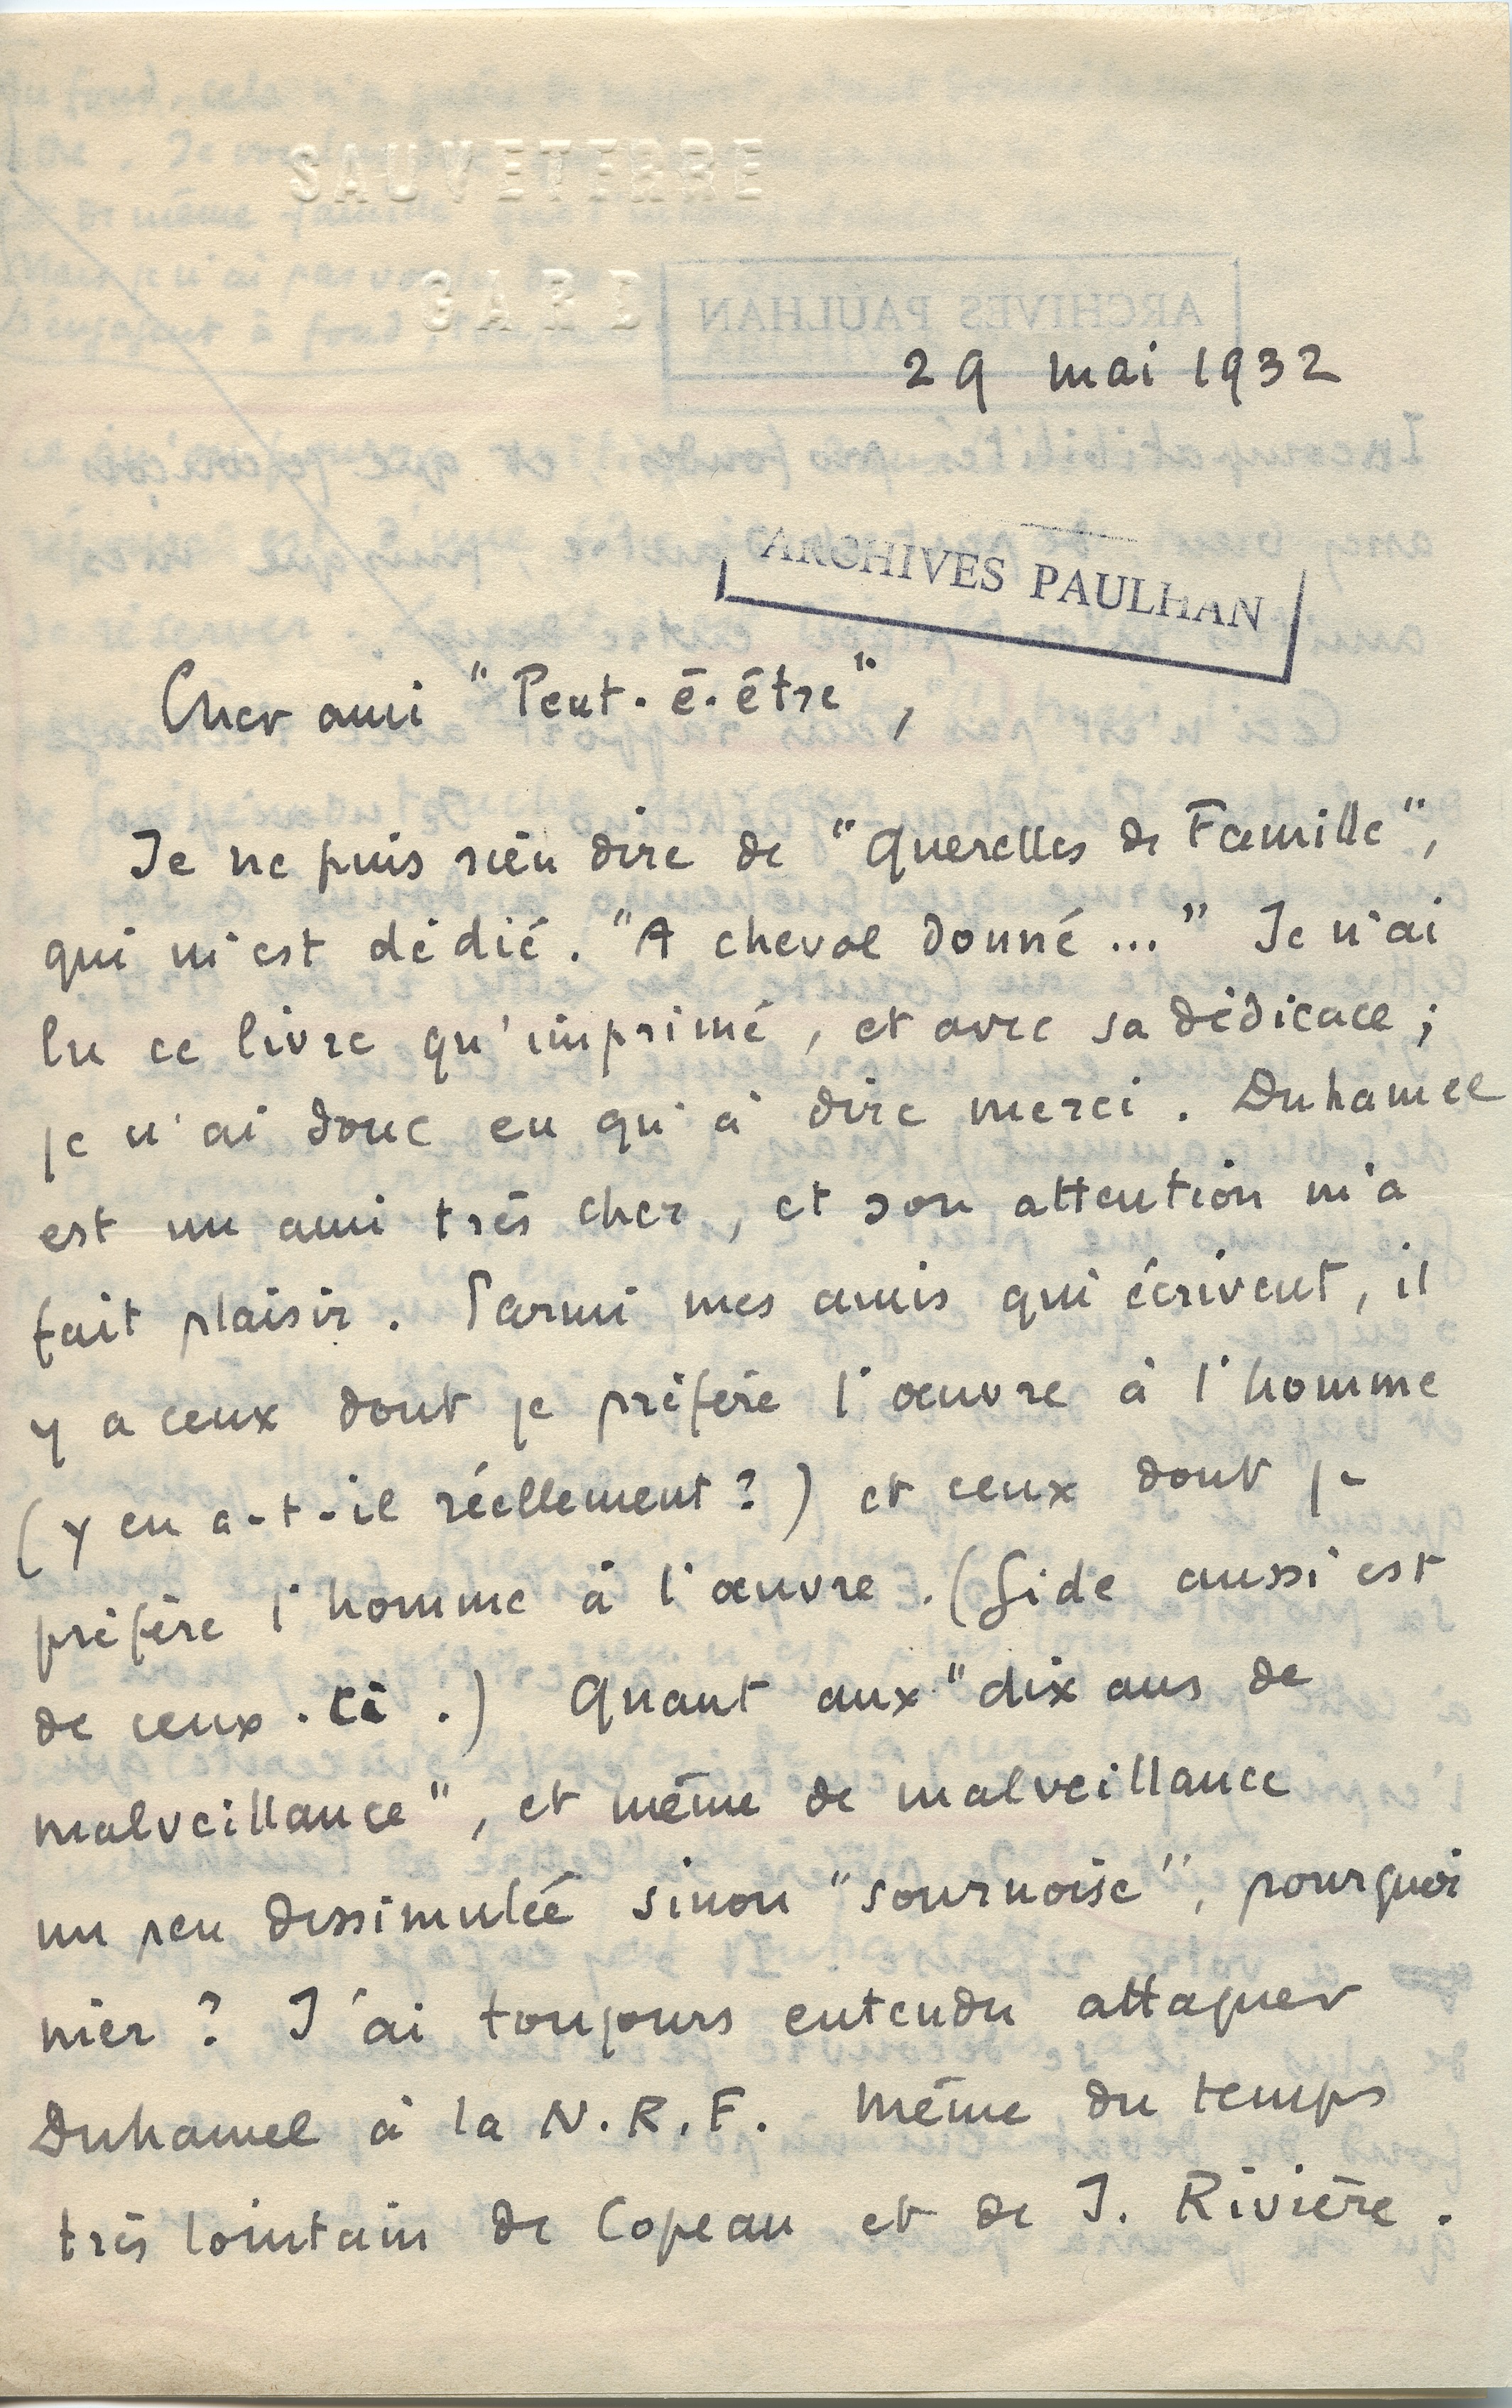 SAUVETERRE
GARD
ARCHIVES PAULHAN
29 mai 1932
ARCHIVES PAULHAN
Cher ami "Peut-ê-être",
Je ne puis rien dire de "Querelles de Famille",
qui m'est dédié. "A cheval donné..." Je n'ai
lu ce livre qu'imprimé, et avec sa dédicace ;
je n'ai donc eu qu'à dire merci. Duhamel
est un ami très cher, et son attention m'a
fait plaisir. Parmi mes amis qui écrivent, il
y a ceux dont je préfère l'œuvre à l'homme
(y en a-t-il réellement ?) et ceux dont je
préfère l'homme à l'œuvre. (Gide aussi est
de ceux-ci.) Quant aux "dix ans de
malveillance", et même de malveillance
un peu dissimulée sinon "sournoise", pourquoi
nier ? J'ai toujours entendu attaquer
Duhamel à la N.R.F. Même du temps
très lointain de Copeau et de J. Rivière.